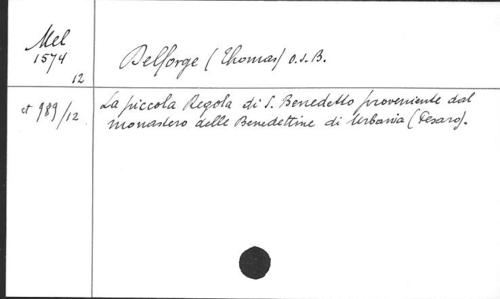 Mel
1574
12
Delforge (Thomas) O.S.B.
et 989/12
La piccola Regola di S. Benedetto proveniente dal
monastero delle Benedettine di Urbania (Pesaro).